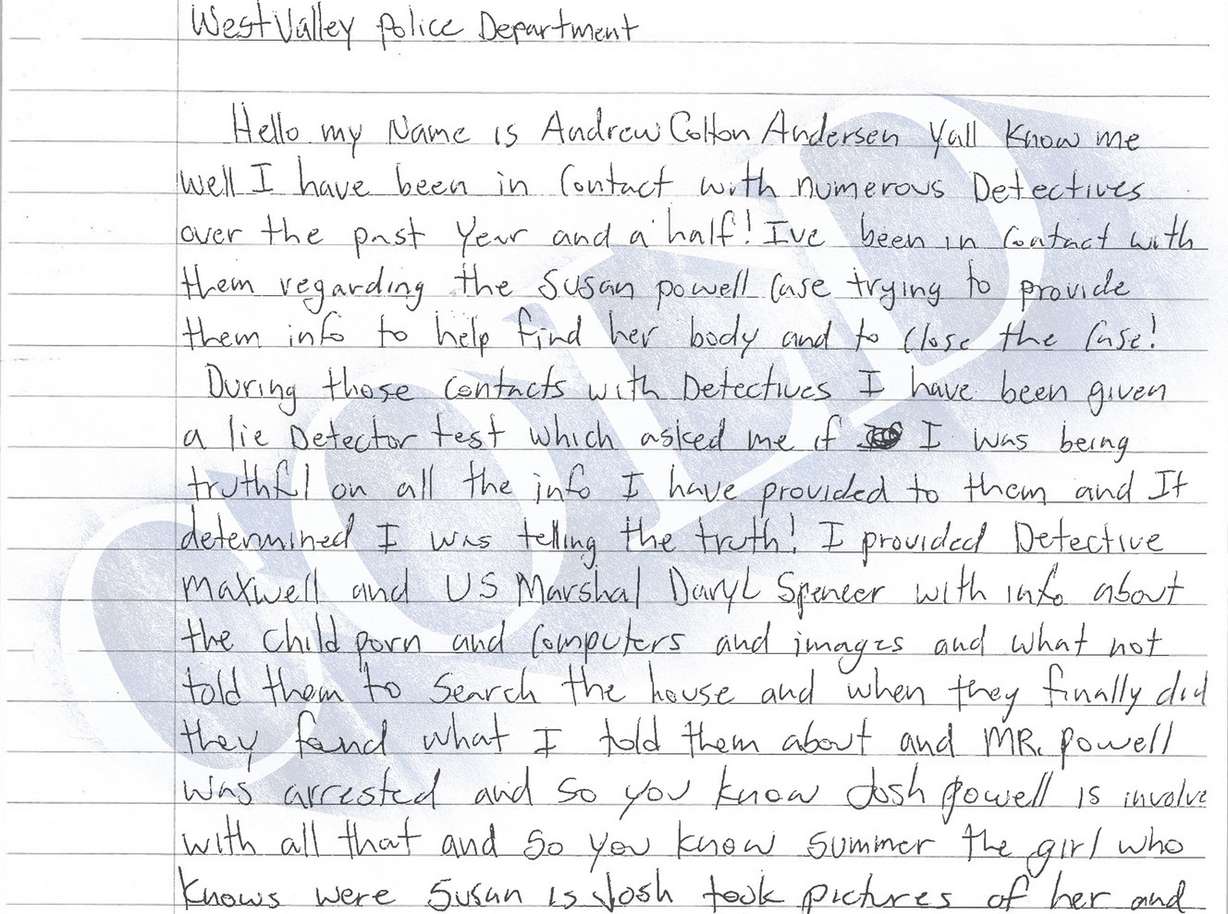 West Valley Police Department
Hello my Name is Andrew Colton Andersen Yall Know me
well I have been in Contact with numerous Detectives
over the past year and a half! Ive been in Contact with
them regarding the Susan powell Case trying to provide
them info to help find her body and to Close the Case!
During those Contacts with Detectives I have been given
a lie Detector test which asked me if I was being
truthful on all the info I have provided to them and It
determined I was telling the truth! I provided Detective
Maxwell and US Marshal Daryl Spencer with info about
the child porn and Computers and images and what not
told them to Search the house and when they finally did
they found what I told them about and MR. Powell
was arrested and so you know Josh Powell is involve
with all that and so you know Summer the girl who
knows were Susan is Josh took pictures of her and
COLD